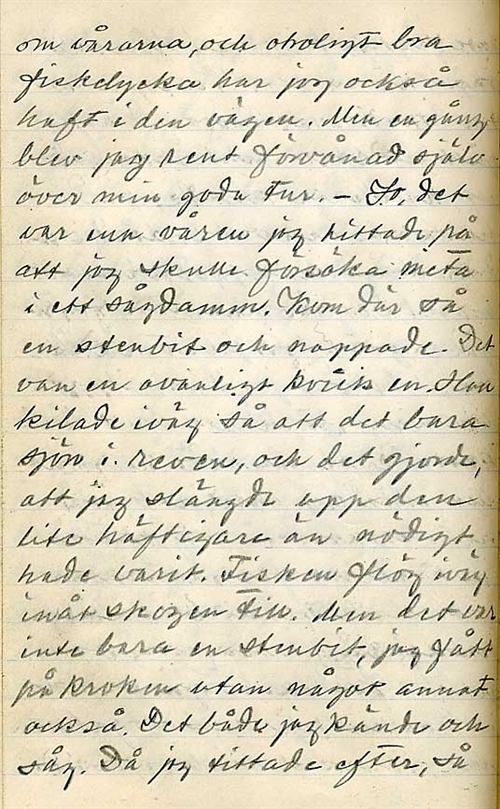 om vårarna, och otroligt bra
fiskelycka har jag också
haft i den vägen. Men en gång
blev jag rent förvånad själv
över min goda tur. – Jo, det
var enn våren jag hittade på
att jag skulle försöka meta
i ett sågdamm. Kom där så
en stenbit och nappade. Det
van en ovanligt kvick en. Han
kilade iväg så att det bara
sjön i reven, och det gjorde,
att jag slängde upp den
lite häftigare än nödigt
hade varit. Fisken flög iväg
inåt skogen till. Men det var
inte bara en stenbit, jag fått
på kroken utan något annat
också. Det både jag kände och
såg. Då jag tittade efter, så